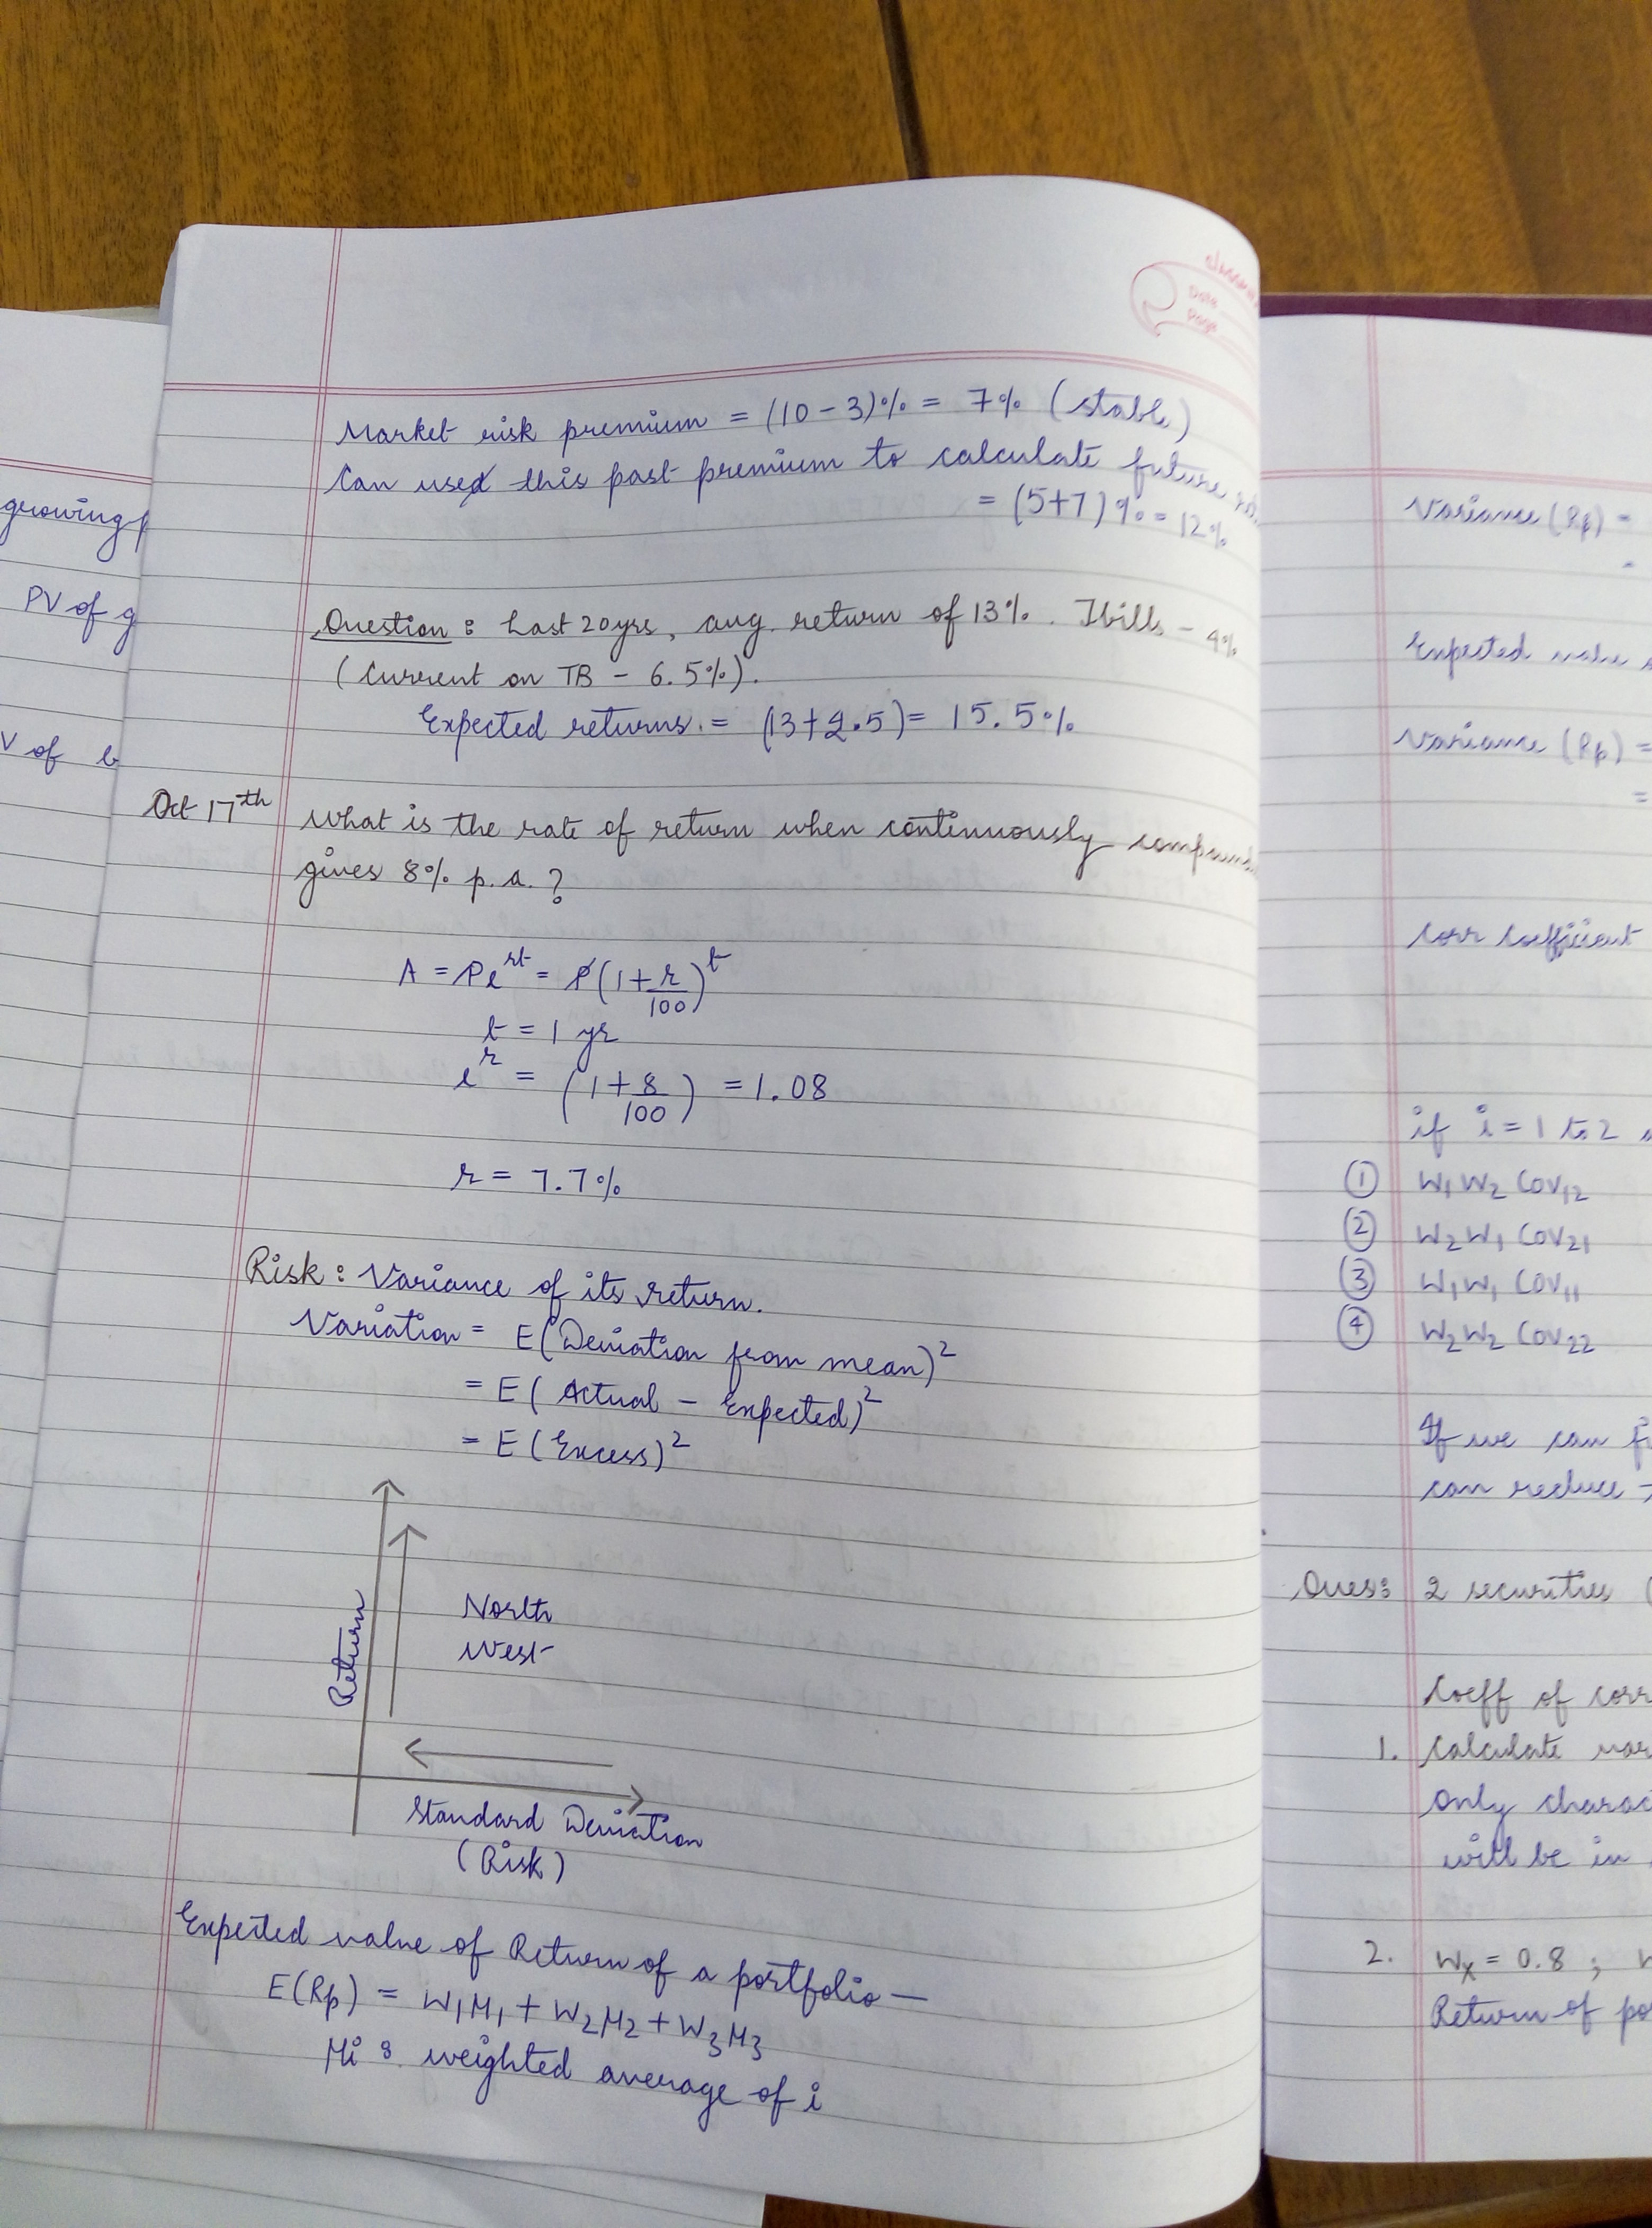 growing
PV of g
V of
Date
Page
Market risk premium = (10 - 3)% = 7% (stable)
Can use this past premium to calculate future
= (5+7)% = 12%
Question : Last 20 yrs, avg. return of 13%. Tbills - 4%
(Current on TB - 6.5%).
Expected returns. = (13+2.5) = 15.5%
Oct 17th What is the rate of return when continuously
gives 8% p.a. ?
A = Pe^rt = P(1 + r/100)^t
t = 1 yr
e^r = (1 + 8/100) = 1.08
r = 7.7%
Risk : Variance of its return.
Variation = E(Deviation from mean)²
= E( Actual - Expected)²
= E (Excess)²
Return
North
West
Standard Deviation
(Risk)
Expected value of Return of a portfolio —
E(Rp) = W₁M₁ + W₂M₂ + W₃M₃
Mi : weighted average of i
Variance (Rp) =
Expected value
Variance (Rp) =
=
Corr Coefficient
if i = 1 to 2
① W₁W₂ Cov₁₂
② W₂W₁ Cov₂₁
③ W₁W₁ Cov₁₁
④ W₂W₂ Cov₂₂
If we can
can reduce
Ques: 2 securities (
Coeff of corr
1. Calculate var
only charac
will be in
2. Wx = 0.8 ; W
Return of po